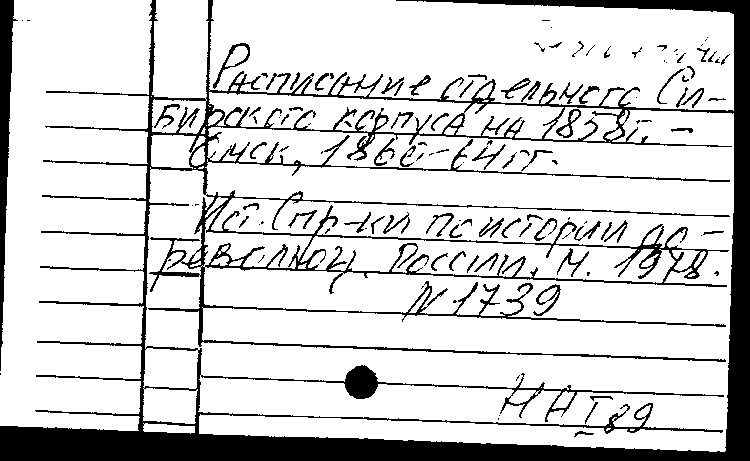 Расписание отдельного Си-
бирского корпуса на 1858г. –
Омск, 1860-64 гг.
Ист. Спр-ки по истории до-
революц. России. М. 1978.
N 1739
НА I 89